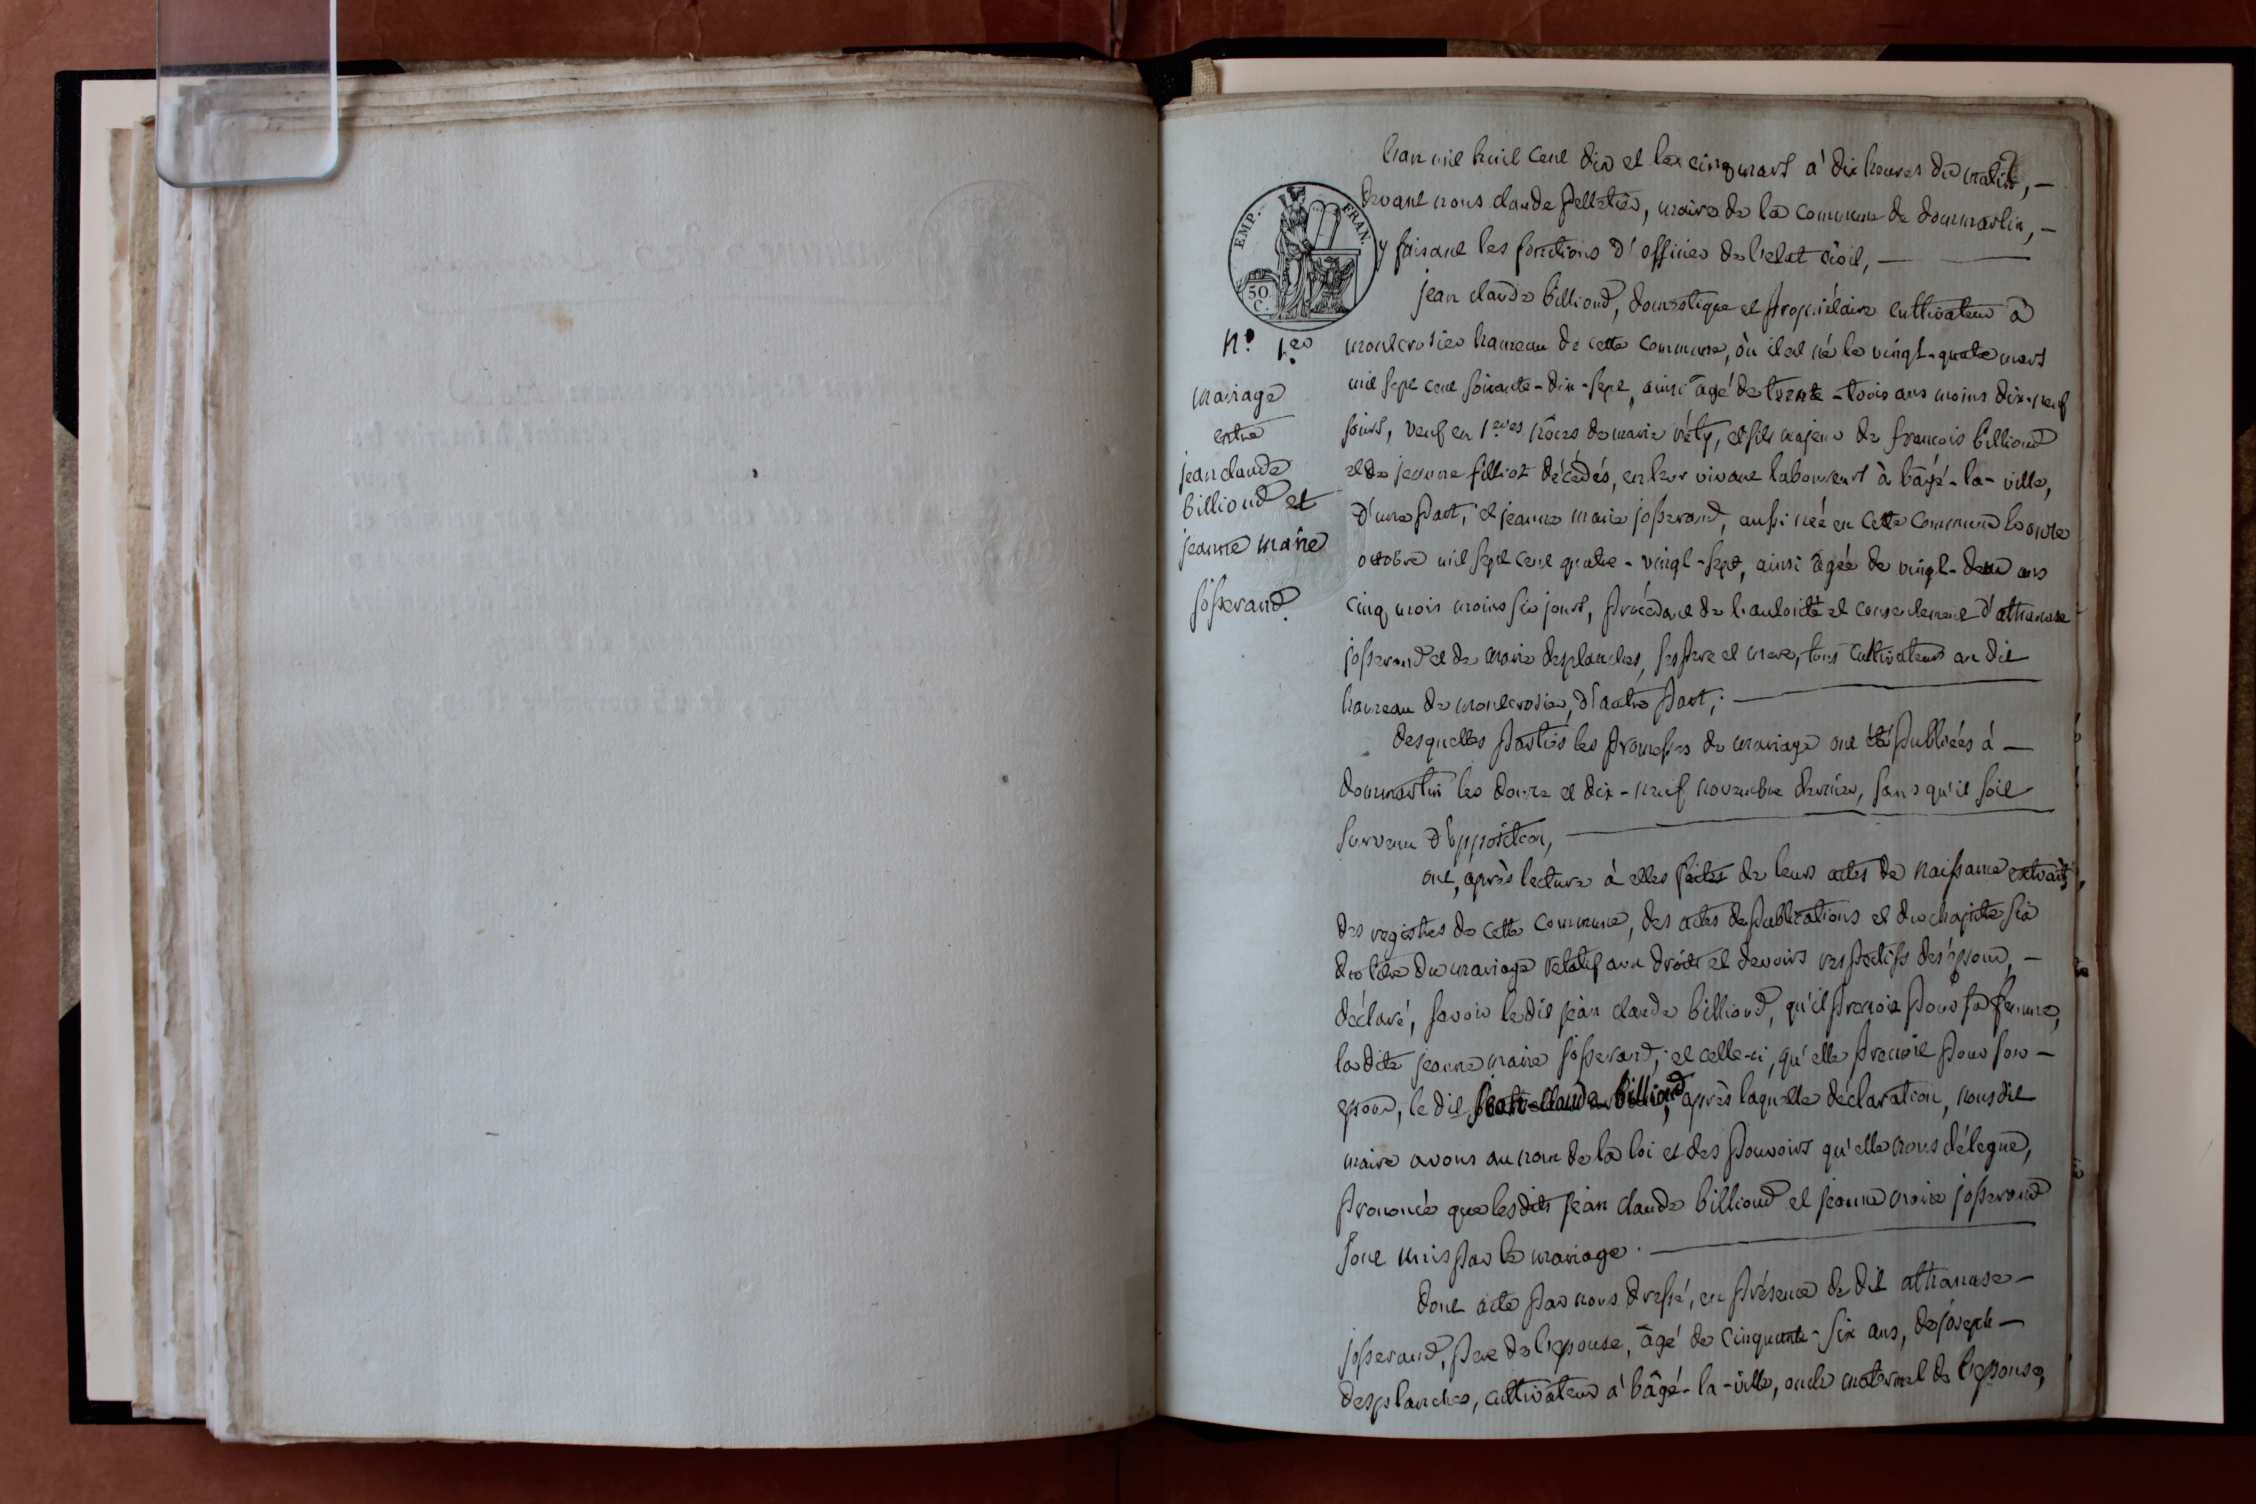 EMP. FRAN.
50 C.
N.º 1.er
mariage
entre
jean claude
billioud et
jeanne marie
josserand.
L'an mil huit cent dix et le cinq mars à dix heures du matin, —
devant nous claude pelletier, maire de la commune de dommartin, —
y faisant les fonctions d'officier de l'etat civil, —
jean claude billioud, domestique et propriétaire cultivateur à
montcrosier hameau de cette commune, où il est né le vingt-quatre mars
mil sept cent soixante-dix-sept, ainsi âgé de trente-trois ans moins dix-neuf
jours, veuf en 1.eres nôces de marie véty, et fils majeur de francois billioud
et de jeanne filliot décédés, en leur vivant laboureurs à bâgé-la-ville,
d'une part, et jeanne marie josserand, aussi née en cette commune le onze
octobre mil sept cent quatre-vingt-sept, ainsi âgée de vingt-deux ans
cinq mois moins six jours, procédant de l'autorité et consentement d'athanase
josserand et de marie desplanches, ses pere et mere, tous cultivateurs au dit
hameau de montcrosier, d'autre part; —
desquelles parties les promesses de mariage ont été publiées à —
dommartin les douze et dix-neuf novembre dernier, sans qu'il soit
survenu d'opposition, —
ont, après lecture à elles faite de leurs actes de naissance extraits
des registres de cette commune, des actes de publications et du chapitre six
du titre du mariage relatif aux droits et devoirs respectifs des époux, —
déclaré, savoir le dit jean claude billioud, qu'il prenoit pour sa femme,
la dite jeanne marie josserand; et celle-ci, qu'elle prenoit pour son —
epoux, le dit jean claude billioud, après laquelle déclaration, nous dit
maire avons au nom de la loi et des pouvoirs qu'elle nous délegue,
prononcé que lesdits jean claude billioud et jeanne marie josserand
sont unis par le mariage. —
dont acte par nous dressé, en présence de dit athanase —
josserand, pere de l'epouse, âgé de cinquante-six ans, de joseph —
desplanches, cultivateur à bâgé-la-ville, oncle maternel de l'epouse,